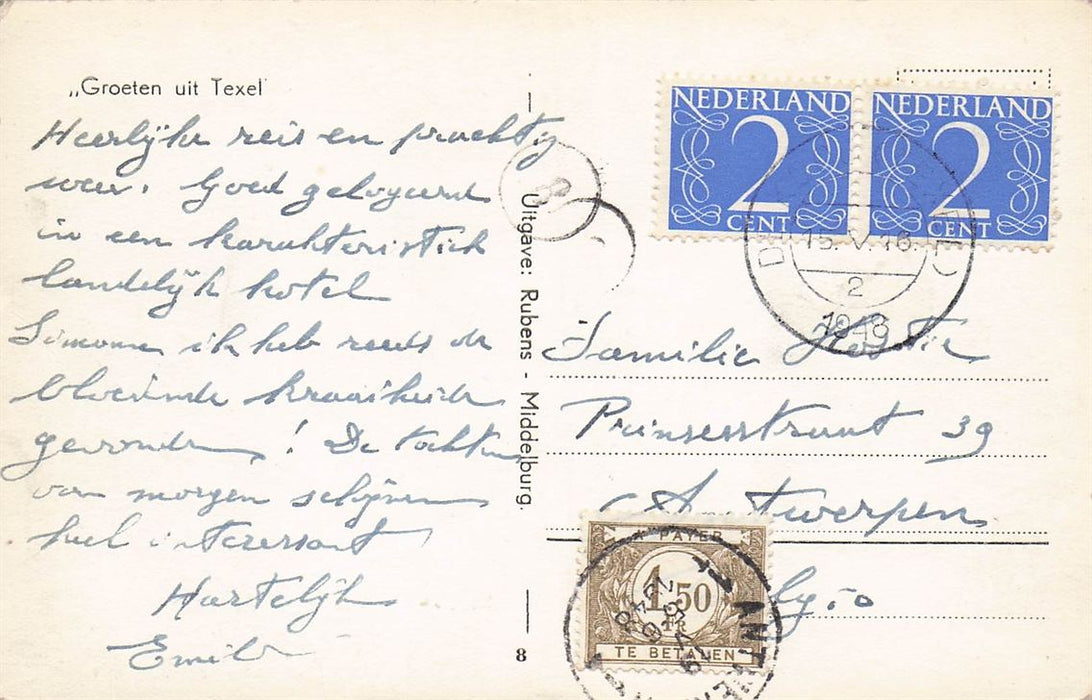 „Groeten uit Texel
Heerlijke reis en prachtig
weer. Goed gelogeerd
in een karakteristiek
landelijk hotel
Simonne ik heb reeds de
bloeiende kraaiheide
gevonden! De tochten
van morgen schijnen
heel interessant
Hartelijk
Emile
Uitgave: Rubens - Middelburg.
8
NEDERLAND
2
CENT
NEDERLAND
2
CENT
15.V.
2
1948
Familie
Prinsesstraat 39
Antwerpen
PAYER
1.50
FR
TE BETALEN